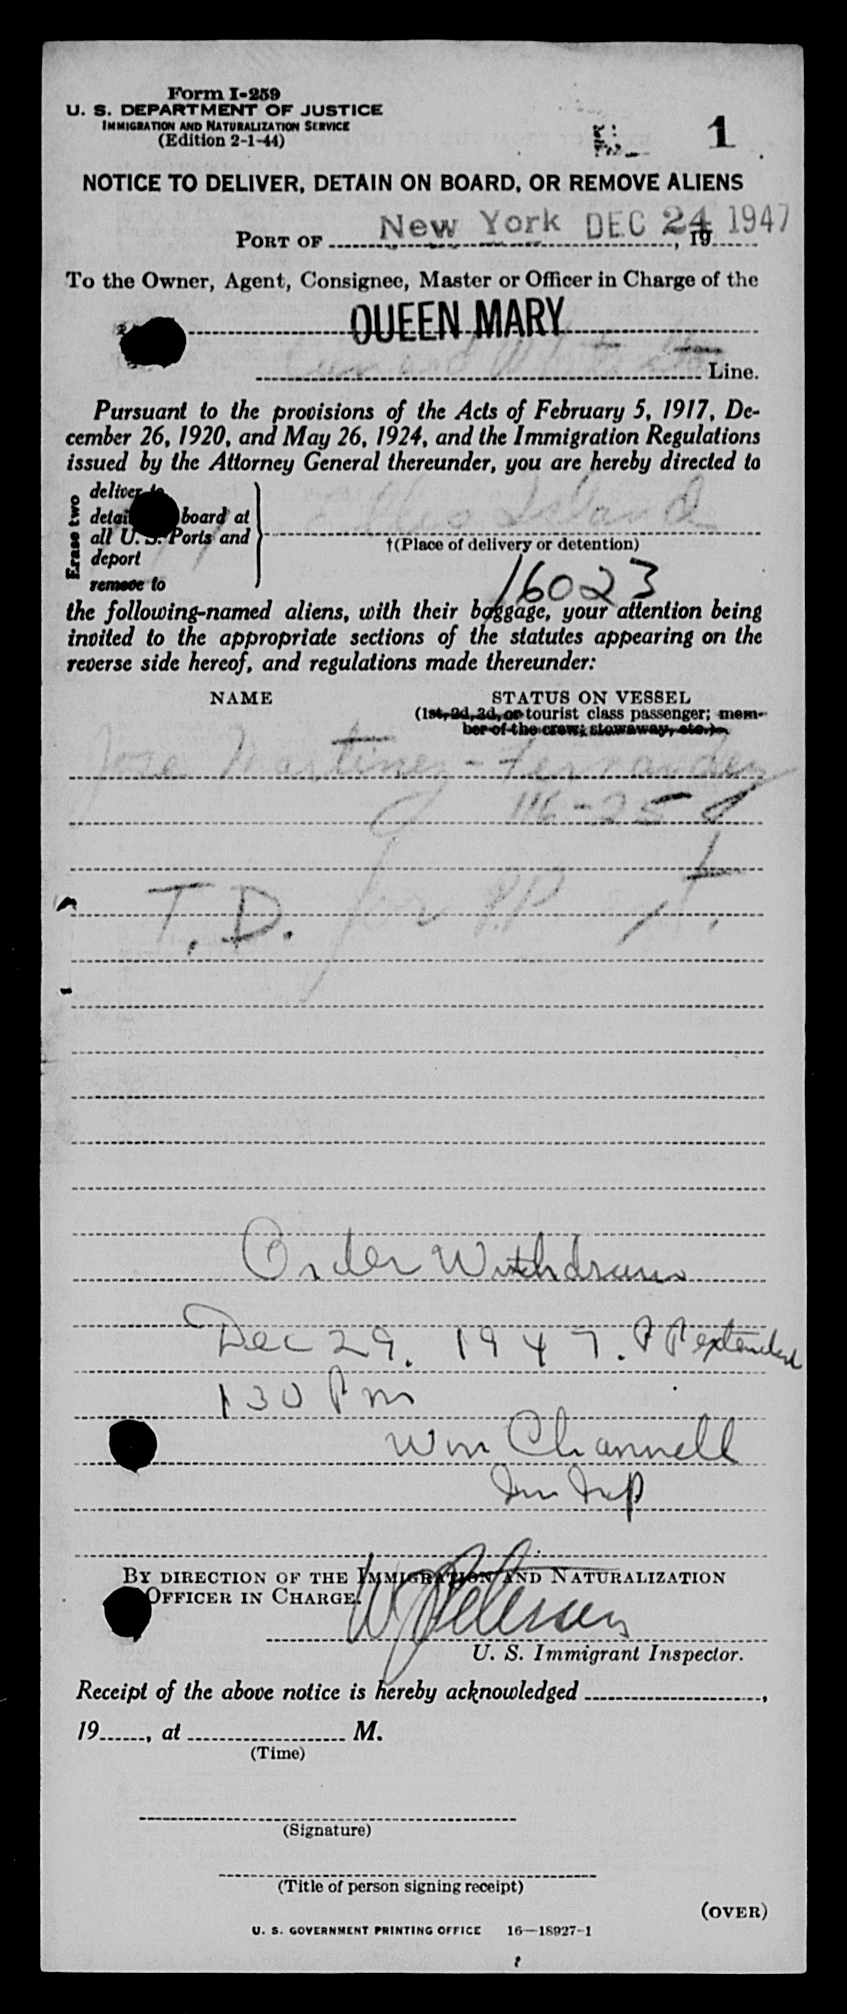 Form I-259
U. S. DEPARTMENT OF JUSTICE
IMMIGRATION AND NATURALIZATION SERVICE
(Edition 2-1-44)
1
NOTICE TO DELIVER, DETAIN ON BOARD, OR REMOVE ALIENS
PORT OF New York DEC 24 1947, 19
To the Owner, Agent, Consignee, Master or Officer in Charge of the
QUEEN MARY
Cunard White Star Line.
Pursuant to the provisions of the Acts of February 5, 1917, De-
cember 26, 1920, and May 26, 1924, and the Immigration Regulations
issued by the Attorney General thereunder, you are hereby directed to
Erase two
deliver to
detain board at
all U. S. Ports and
deport
remove to
Ellis Island
†(Place of delivery or detention)
16023
the following-named aliens, with their baggage, your attention being
invited to the appropriate sections of the statutes appearing on the
reverse side hereof, and regulations made thereunder:
NAME STATUS ON VESSEL
(1st, 2d, 3d, or tourist class passenger; mem-
ber of the crew; stowaway, etc.)
Jose Martinez-Fernandez
116-25
T.D. for P.P. ext.
Order Withdrawn
Dec 29. 1947. PP extended
130 Pm
Wm Channell
Im Insp
BY DIRECTION OF THE IMMIGRATION AND NATURALIZATION
OFFICER IN CHARGE.
W Petersen
U. S. Immigrant Inspector.
Receipt of the above notice is hereby acknowledged ,
19 , at M.
(Time)
(Signature)
(Title of person signing receipt)
(OVER)
U. S. GOVERNMENT PRINTING OFFICE 16—18927-1